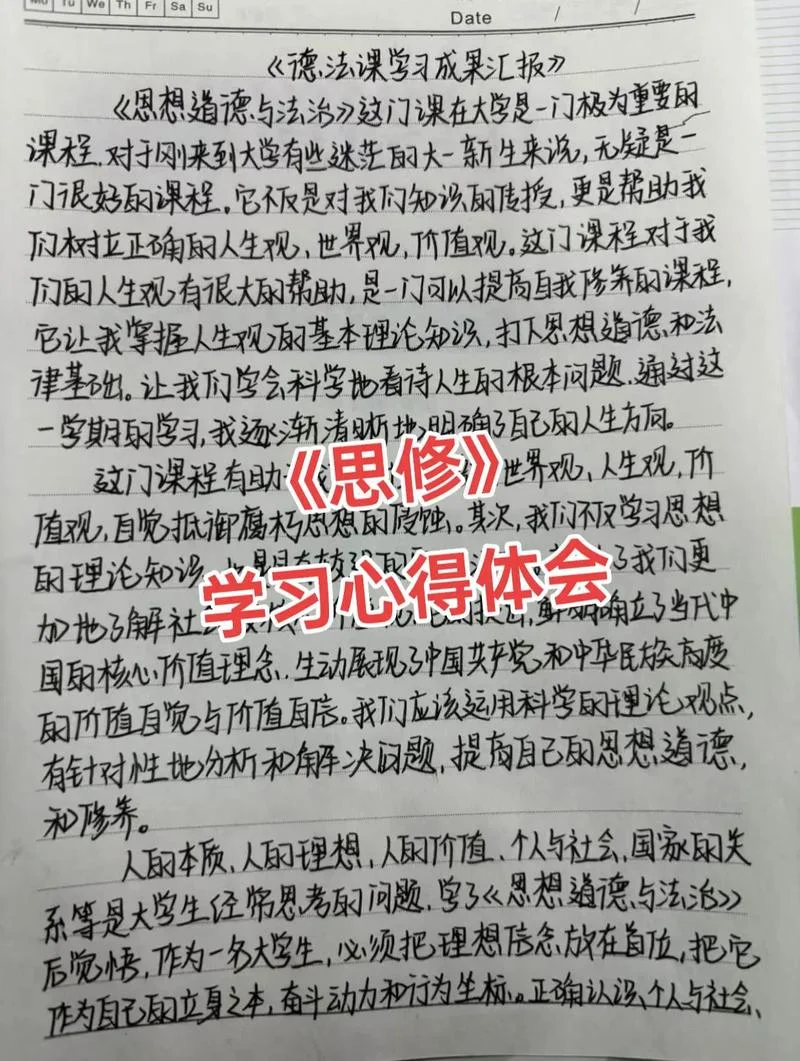 Mo Tu We Th Fr Sa Su
Date / /
《德法课学习成果汇报》
《思想道德与法治》这门课在大学是一门极为重要的
课程,对于刚来到大学有些迷茫的大一新生来说,无疑是一
门很好的课程。它不仅是对我们知识的传授,更是帮助我
们树立正确的人生观、世界观,价值观。这门课程对于我
们的人生观有很大的帮助,是一门可以提高自我修养的课程,
它让我掌握人生观的基本理论知识,打下思想道德和法
律基础。让我们学会科学地看待人生的根本问题.通过这
一学期的学习,我逐渐清晰地明确了自己的人生方向。
这门课程有助 世界观、人生观,价
《思修》
值观,自觉抵御腐朽思想的侵蚀。其次,我们不仅学习思想
的理论知识 了我们更
学习心得体会
加地了解社会 鲜明确立了当代中
国的核心价值理念.生动展现了中国共产党和中华民族高度
的价值自觉与价值自信。我们应该运用科学的理论观点,
有针对性地分析和解决问题,提高自己的思想道德,
和修养。
人的本质、人的理想,人的价值、个人与社会,国家的关
系等是大学生经常思考的问题.学了《思想道德与法治》
后觉悟,作为一名大学生,必须把理想信念放在首位,把它
作为自己的立身之本,奋斗动力和行为坐标。正确认识个人与社会、